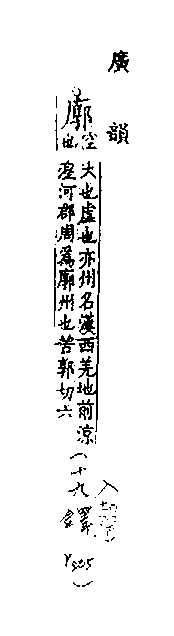 廣韻
廓
空也
大也虛也亦州名漢西羌地前凉
湟河郡周爲廓州也苦郭切六
入
(十九鐸
505)